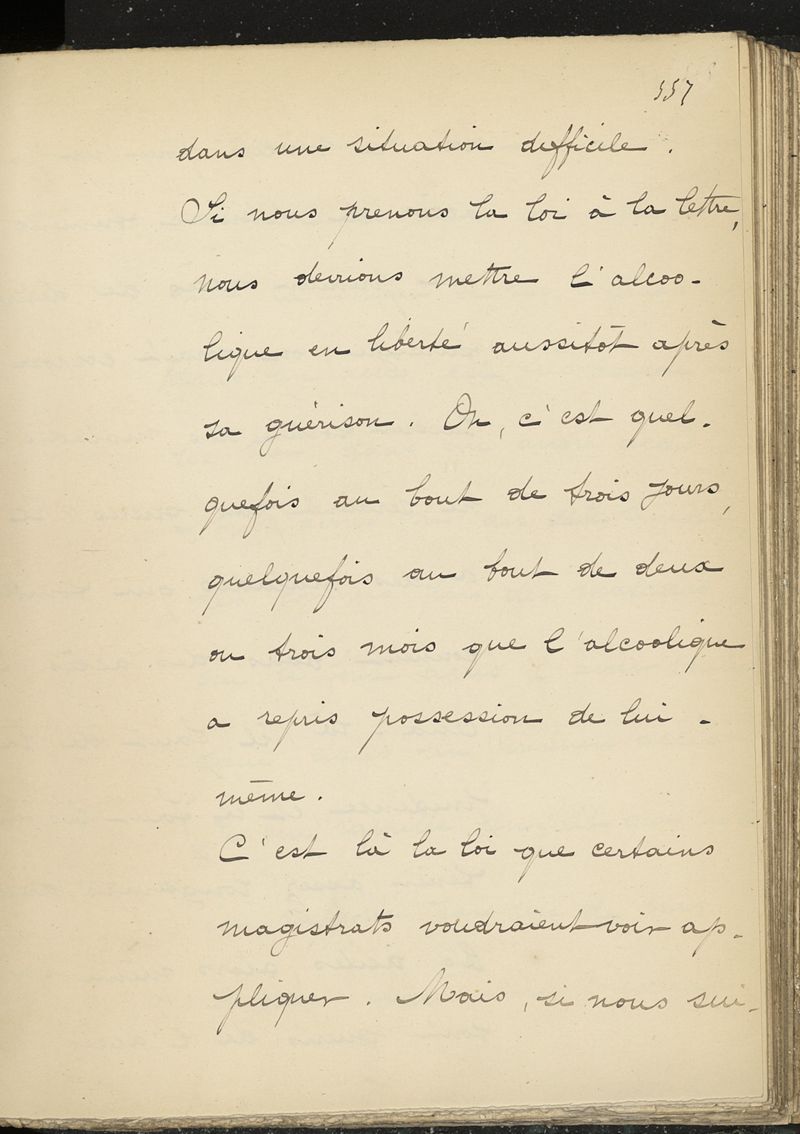 557
dans une situation difficile.
Si nous prenons la loi à la lettre,
nous devrions mettre l'alcoo-
lique en liberté aussitôt après
sa guérison. Or, c'est quel-
quefois au bout de trois jours,
quelquefois au bout de deux
ou trois mois que l'alcoolique
a repris possession de lui-
même.
C'est là la loi que certains
magistrats voudraient voir ap-
pliquer. Mais, si nous sui-